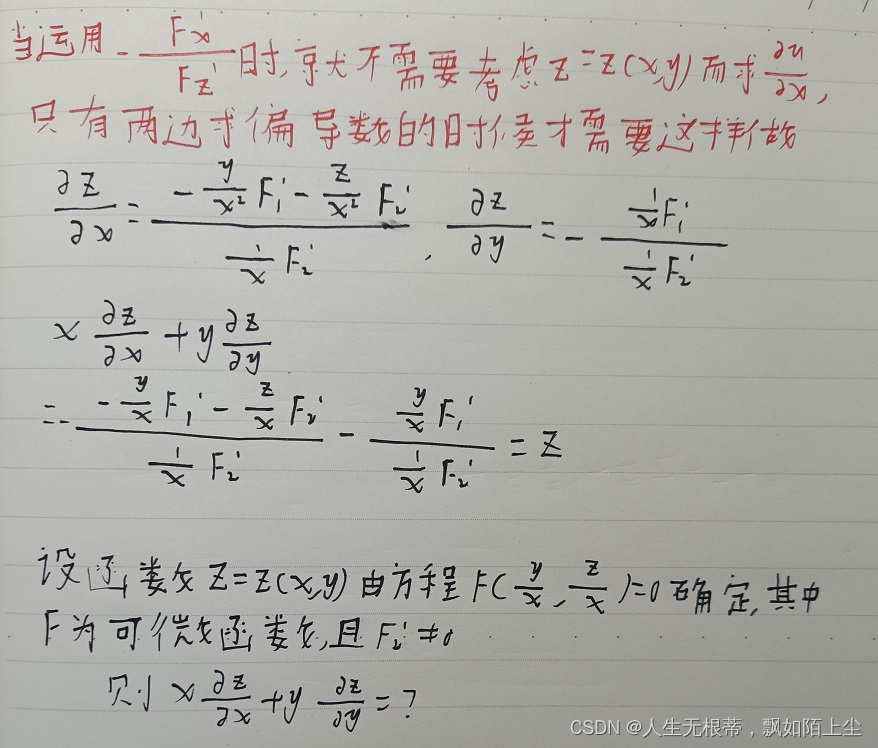 当运用 - F'x / F'z 时,就不需要考虑z=z(x,y)而求∂u/∂x,
只有两边求偏导数的时候才需要这样做
∂z/∂x = (-y/x² F₁' - z/x² F₂') / (1/x F₂') , ∂z/∂y = - (1/x F₁') / (1/x F₂')
x ∂z/∂x + y ∂z/∂y
= - (-y/x F₁' - z/x F₂') / (1/x F₂') - (y/x F₁') / (1/x F₂') = z
设函数z=z(x,y)由方程F(y/x, z/x)=0确定,其中
F为可微函数,且F₂'≠0
则 x ∂z/∂x + y ∂z/∂y = ?
CSDN @人生无根蒂,飘如陌上尘